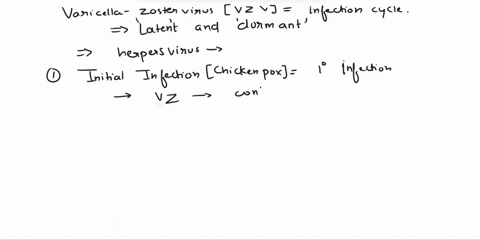 Varicella- zoster virus [VZV] = Infection cycle.
=> 'Latent' and 'dormant'
=> herpers virus →
① Initial Infection [Chicken pox] = 1° Infection
→ VZ → con